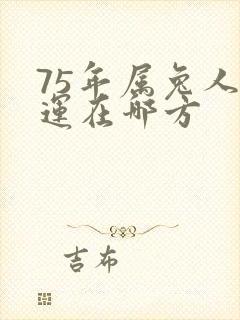 75年属兔人
運在哪方
吉布